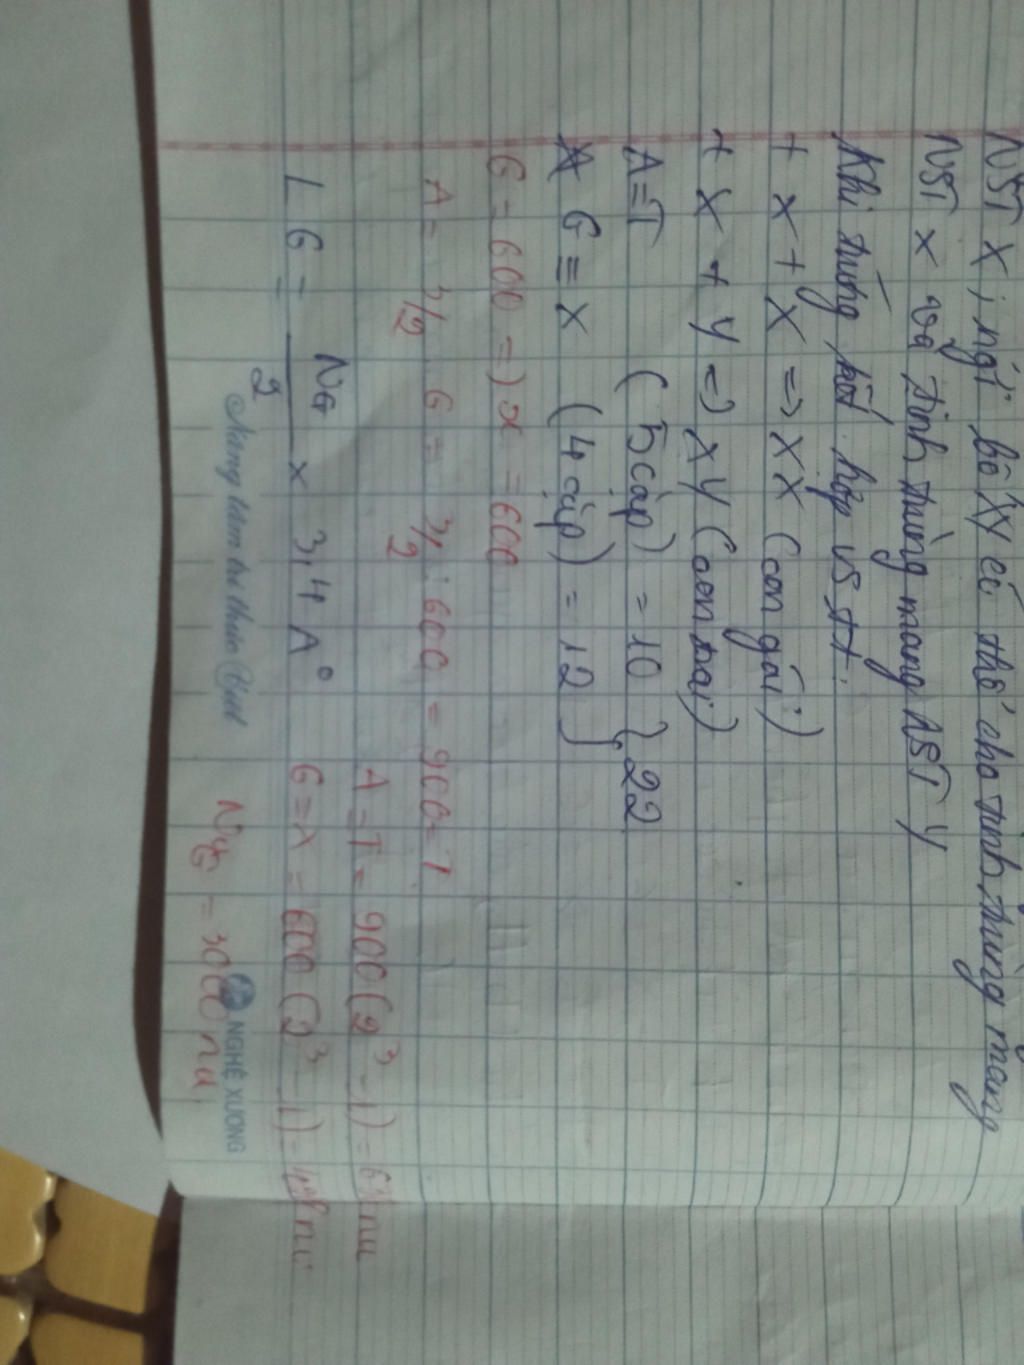 NST X, ngt bố XY có thể cho tinh trùng mang
NST X và tinh trùng mang NST Y
Khi trứng kết hợp vs tt.
+ X + X => XX (con gái)
+ X + Y => XY (con trai)
A=T (5 cặp) = 10 } 22
G≡X (4 cặp) = 12
G = 600 => X = 600
A = 3/2 G = 3/2 . 600 = 900 = T
A = T = 900 (2³ - 1) = nu
LG = NG/2 x 3,4 A° G = X = 600 (2³ - 1) = nu
Nâng tầm tri thức Việt NGHỆ XƯƠNG
= 3000 nu